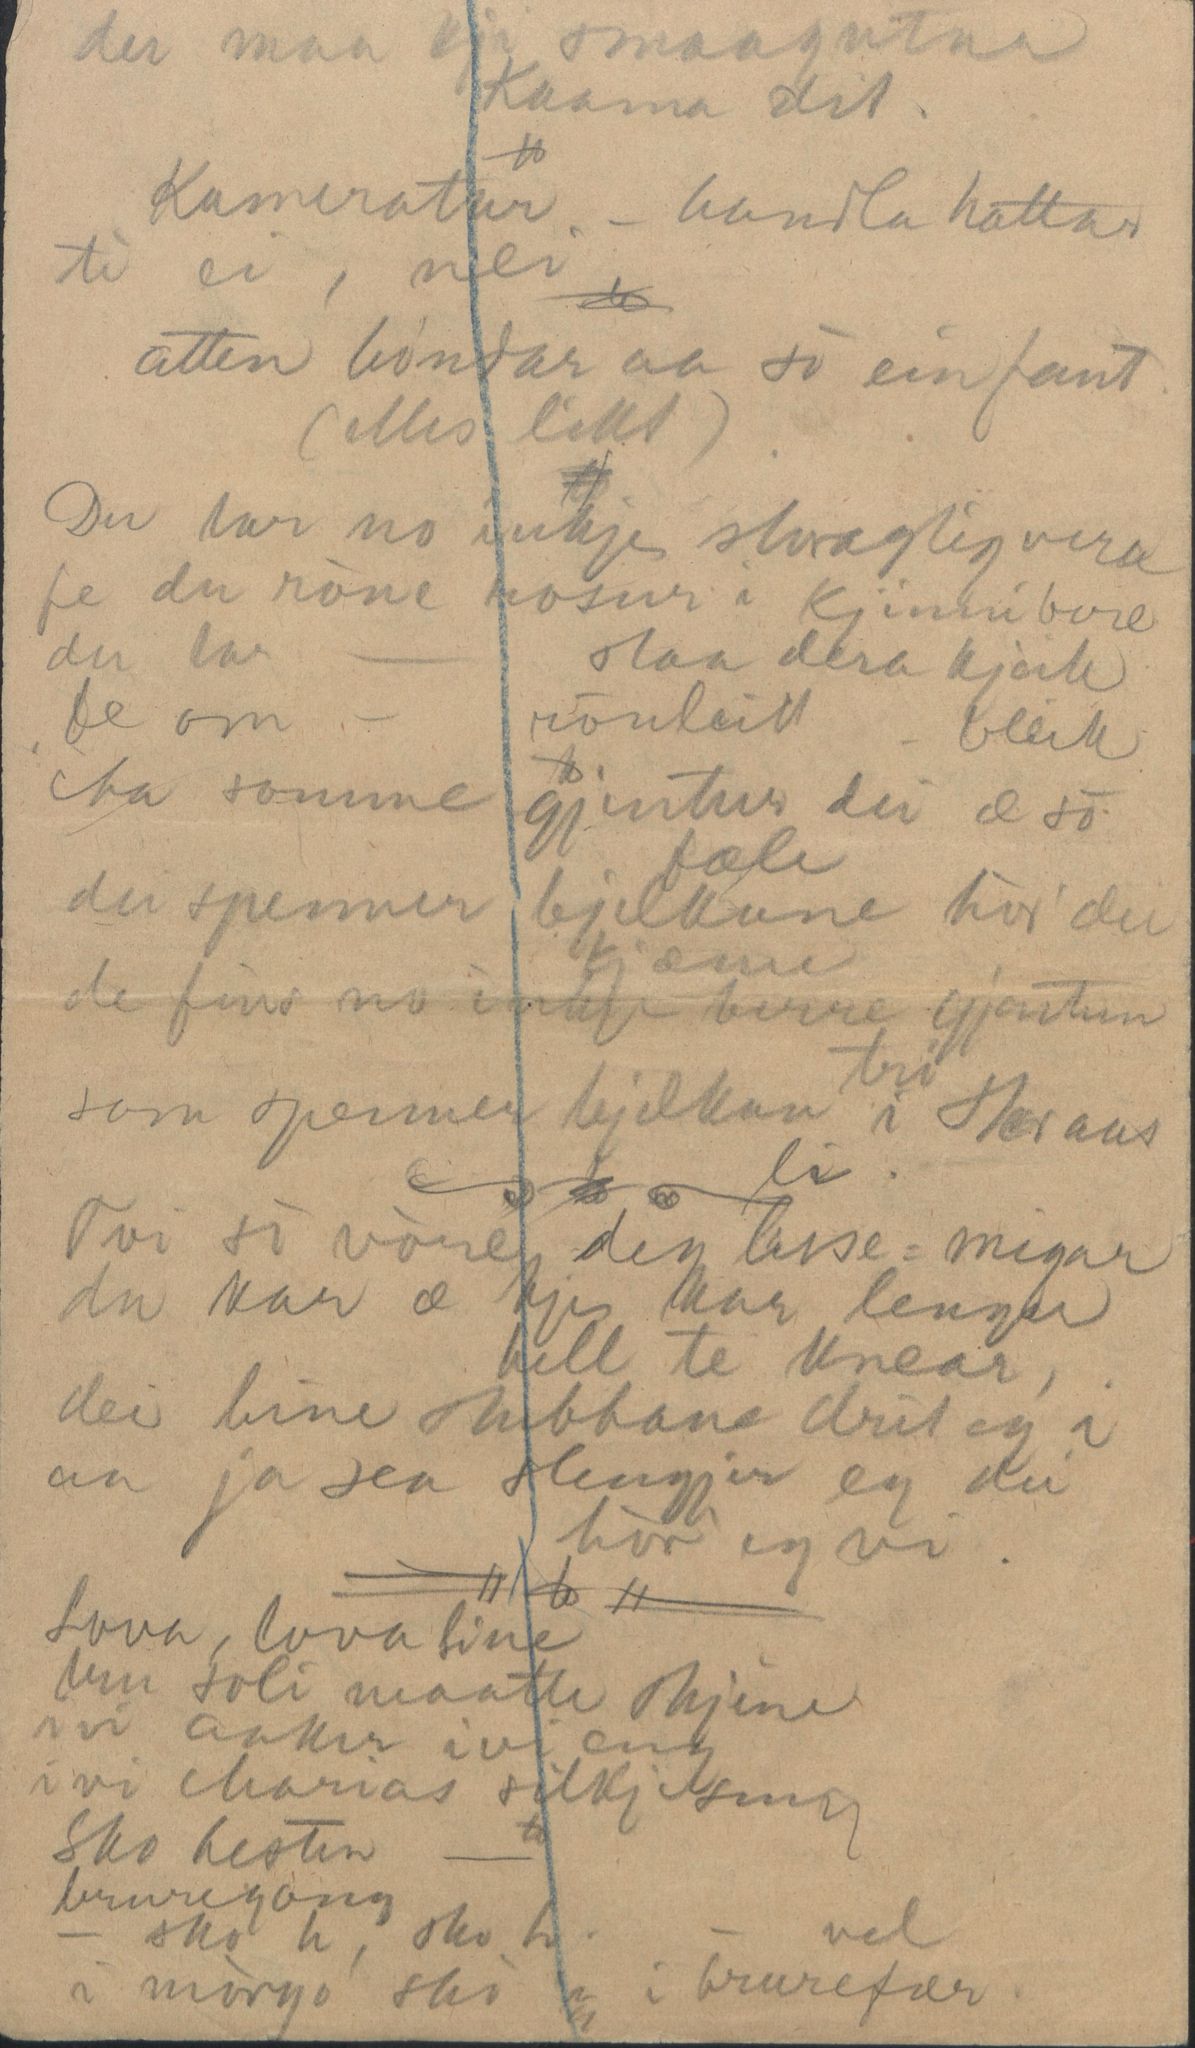 dei maa kji smaagutar
Kaama dit.
Kameratar – handla hattar
ti ei, nei
atten böndar aa sò ein fant.
(alles likt)
Du tar no inkje storagtig vera
fe du röne rosur i kjinni bere
du tar — staa dera kjeik
fe om – rönleitt – bleik
Ha somme gjentur dei æ sò
fæle
dei spenner bjelkane hòr dei
kjæme
de fins no inkje berre gjentun
tri
som spenner bjelkan i Skoraas
li.
Tvi sò vòre deg lusse-migar
du kar æ kje kar lenger
hell te knear,
dei bine stubbane drit eg i
aa ja sea slengjer eg dei
hòr eg vi.
Lova, lova Line
lru soli maatte skjine
ivi aaker ivi eng
ivi Marias silkjeseng
Sko hesten —
bruregang
– sko h, sko h. – vel
i mòrgò skò i brurefær.